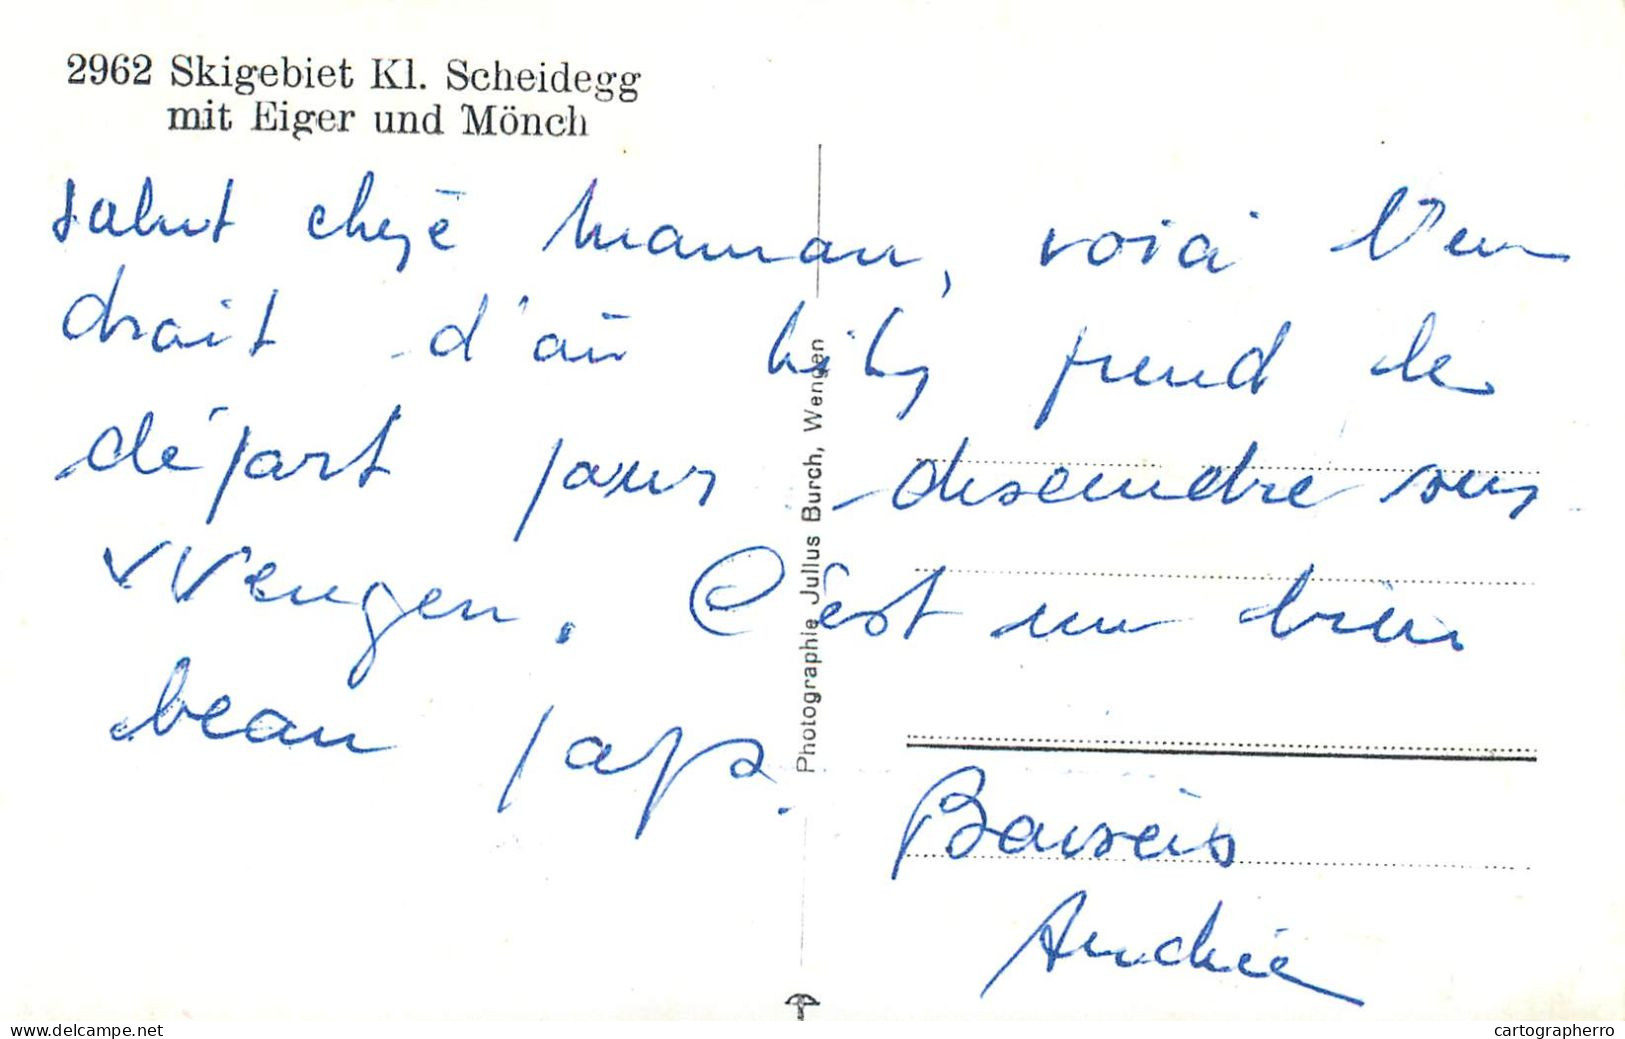 2962 Skigebiet Kl. Scheidegg
mit Eiger und Mönch
salut chère maman, voici l'en
droit d'où Willy prend le
départ pour descendre sur
Wengen. C'est un bien
beau pays.
Baisers
Photographie Julius Burch, Wengen
www.delcampe.net
cartographerro